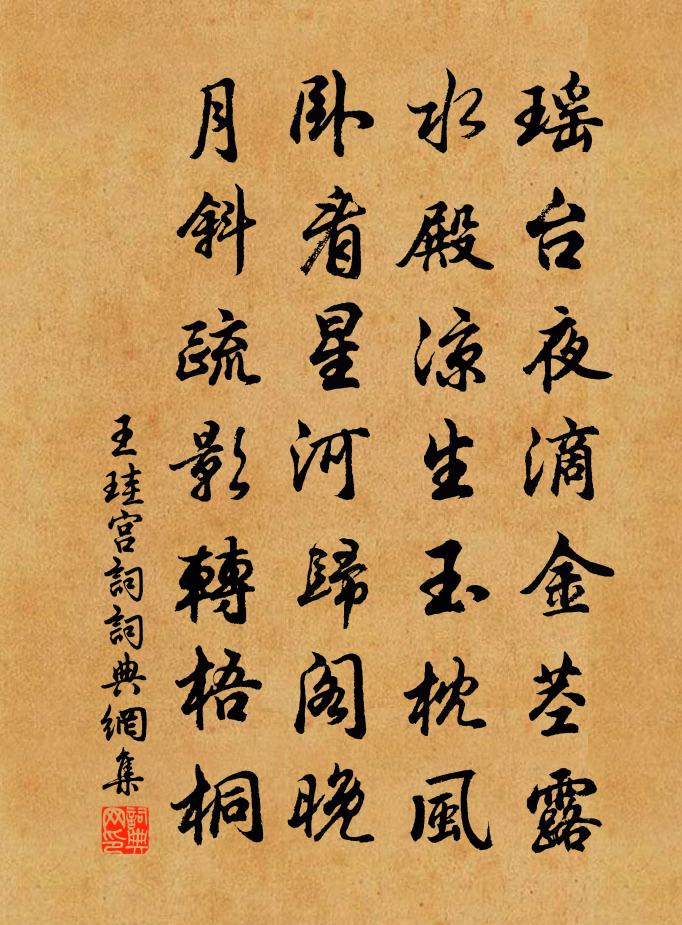 瑶台夜滴金茎露
水殿凉生玉枕風
卧看星河歸阁晚
月斜疏影轉梧桐
王珪宫詞詞典網集
詞典网印